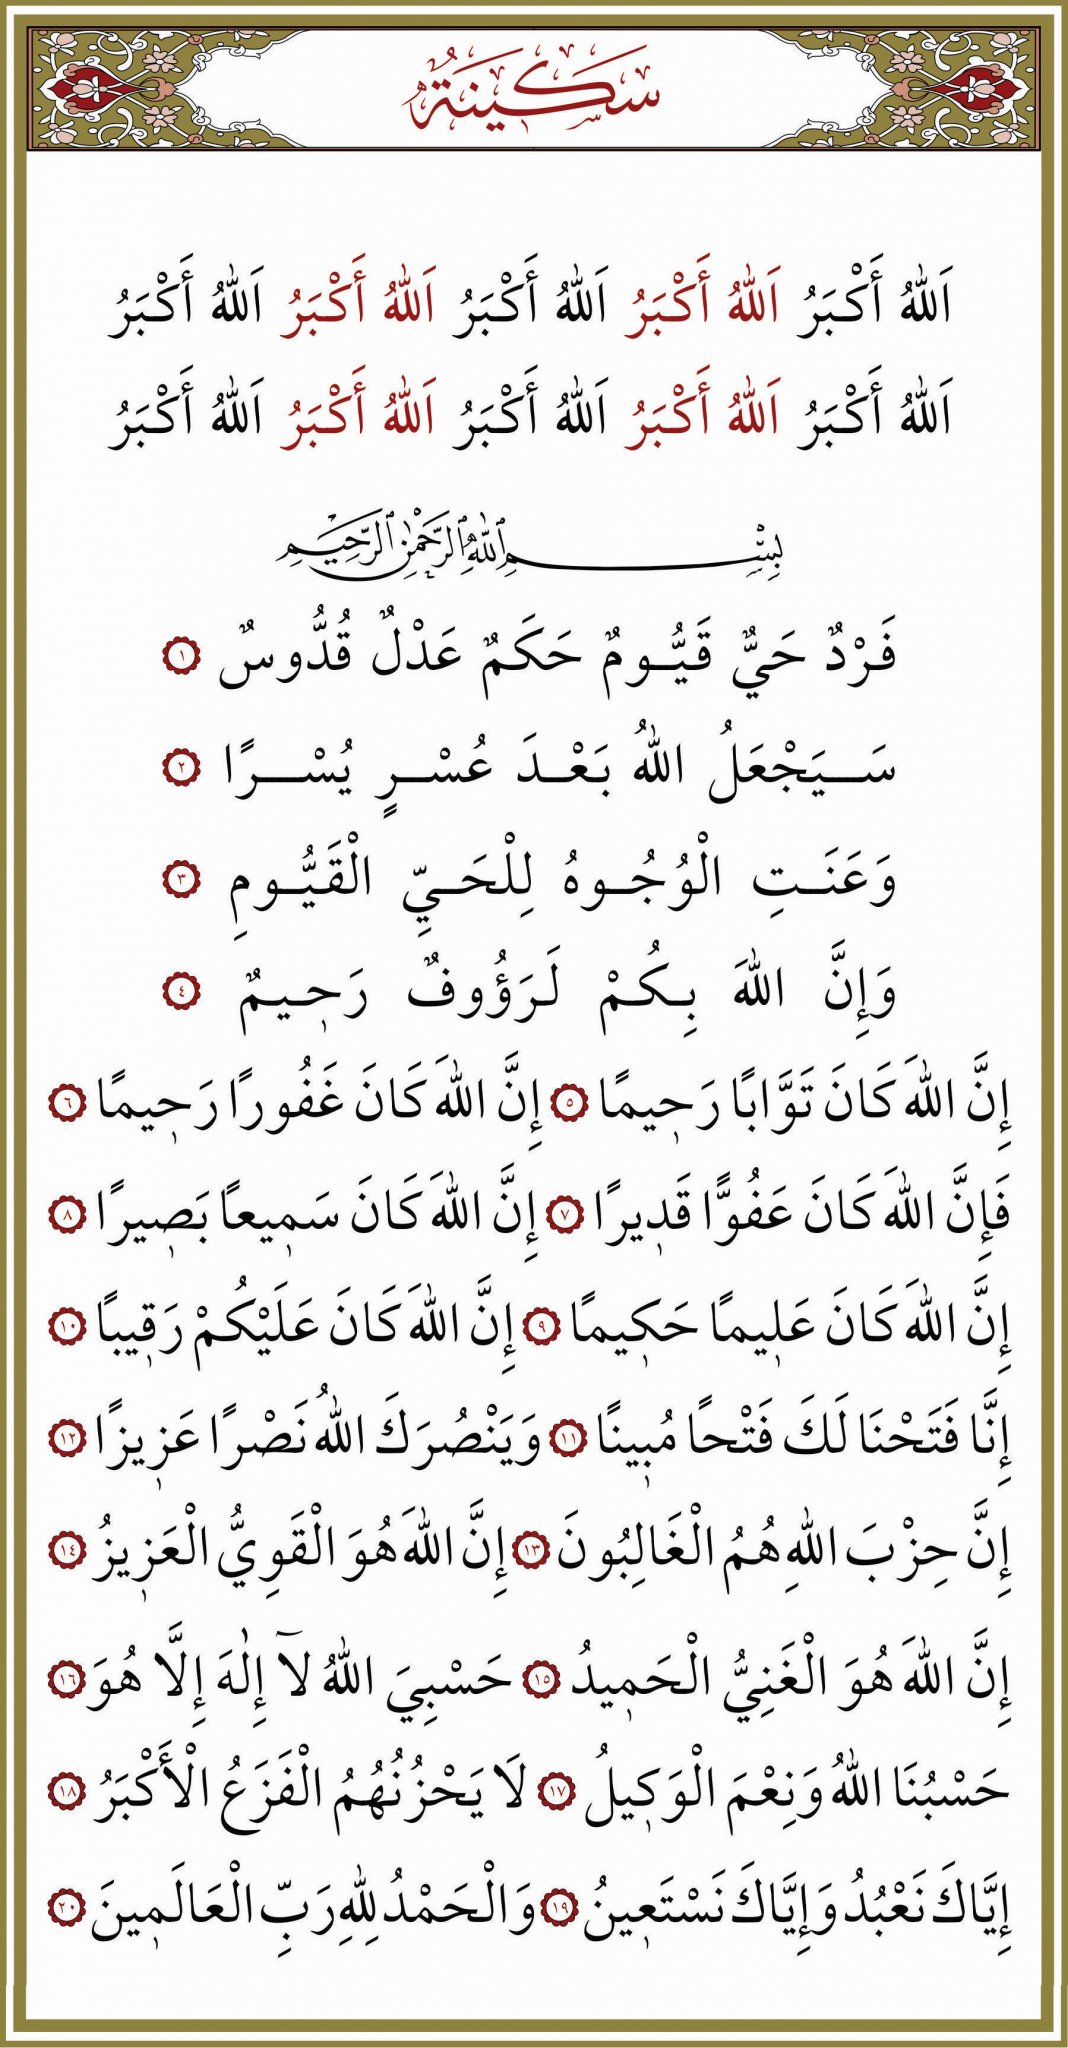 سَكِينَةٌ
اَللهُ أَكْبَرُ اَللهُ أَكْبَرُ اَللهُ أَكْبَرُ اَللهُ أَكْبَرُ اَللهُ أَكْبَرُ
اَللهُ أَكْبَرُ اَللهُ أَكْبَرُ اَللهُ أَكْبَرُ اَللهُ أَكْبَرُ اَللهُ أَكْبَرُ
بِسْمِ ٱللّٰهِ ٱلرَّحْمٰنِ ٱلرَّحِيمِ
فَرْدٌ حَيٌّ قَيُّومٌ حَكَمٌ عَدْلٌ قُدُّوسٌ ١
سَيَجْعَلُ اللهُ بَعْدَ عُسْرٍ يُسْرًا ٢
وَعَنَتِ الْوُجُوهُ لِلْحَيِّ الْقَيُّومِ ٣
وَإِنَّ اللهَ بِكُمْ لَرَؤُوفٌ رَحِيمٌ ٤
إِنَّ اللهَ كَانَ تَوَّابًا رَحِيمًا ٥ إِنَّ اللهَ كَانَ غَفُورًا رَحِيمًا ٦
فَإِنَّ اللهَ كَانَ عَفُوًّا قَدِيرًا ٧ إِنَّ اللهَ كَانَ سَمِيعًا بَصِيرًا ٨
إِنَّ اللهَ كَانَ عَلِيمًا حَكِيمًا ٩ إِنَّ اللهَ كَانَ عَلَيْكُمْ رَقِيبًا ١٠
إِنَّا فَتَحْنَا لَكَ فَتْحًا مُبِينًا ١١ وَيَنْصُرَكَ اللهُ نَصْرًا عَزِيزًا ١٢
إِنَّ حِزْبَ اللهِ هُمُ الْغَالِبُونَ ١٣ إِنَّ اللهَ هُوَ الْقَوِيُّ الْعَزِيزُ ١٤
إِنَّ اللهَ هُوَ الْغَنِيُّ الْحَمِيدُ ١٥ حَسْبِيَ اللهُ لَآ إِلٰهَ إِلَّا هُوَ ١٦
حَسْبُنَا اللهُ وَنِعْمَ الْوَكِيلُ ١٧ لَا يَحْزُنُهُمُ الْفَزَعُ الْأَكْبَرُ ١٨
إِيَّاكَ نَعْبُدُ وَإِيَّاكَ نَسْتَعِينُ ١٩ وَالْحَمْدُ لِلهِ رَبِّ الْعَالَمِينَ ٢٠